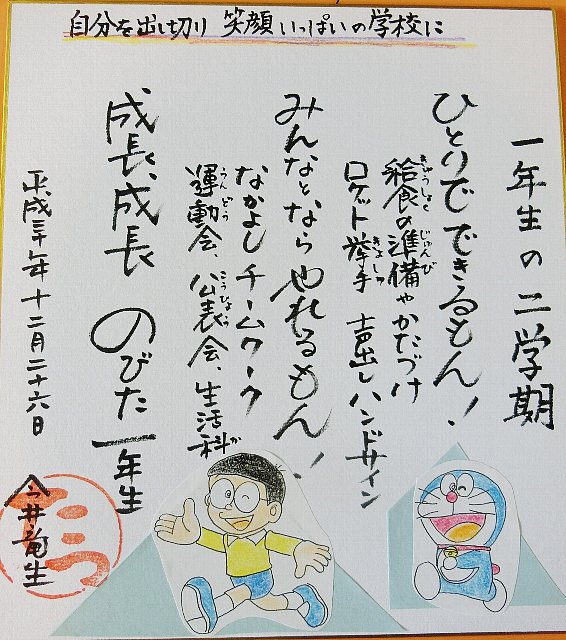 自分を出し切り 笑顔いっぱいの学校に
一年生の二学期
ひとりでできるもん！
給食の準備やかたづけ
きゅうしょく じゅんび
ロケット挙手 声出しハンドサイン
きょしゅ
みんなとなら やれるもん！
なかよしチームワーク
運動会、公表会、生活科
うんどう こうひょう か
成長、成長 のびた一年生
平成三十年十二月二十六日
今井竜生